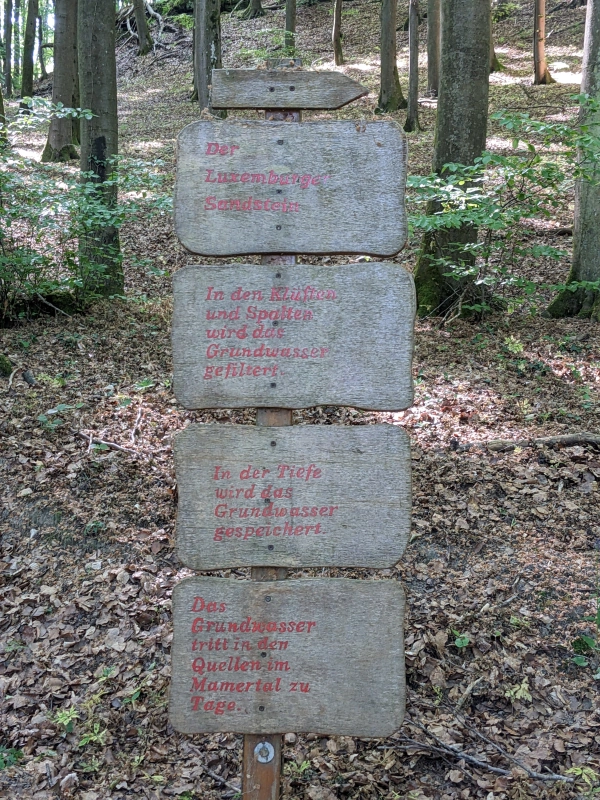 Der
Luxemburger
Sandstein
In den Klüften
und Spalten
wird das
Grundwasser
gefiltert.
In der Tiefe
wird das
Grundwasser
gespeichert.
Das
Grundwasser
tritt in den
Quellen im
Mamertal zu
Tage.